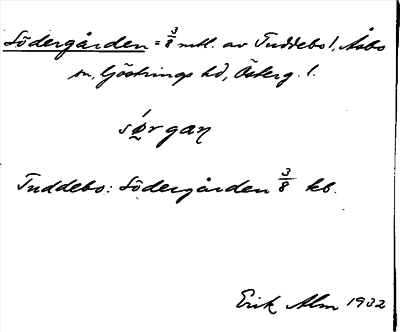 Södergården = 3/8 mtl. av Tuddebo!, Åsbo
sn, Göstrings hd, Österg. l.
sǿ̰r gaɲ
Tuddebo: Södergården 3/8 kb.
Erik Alm 1932